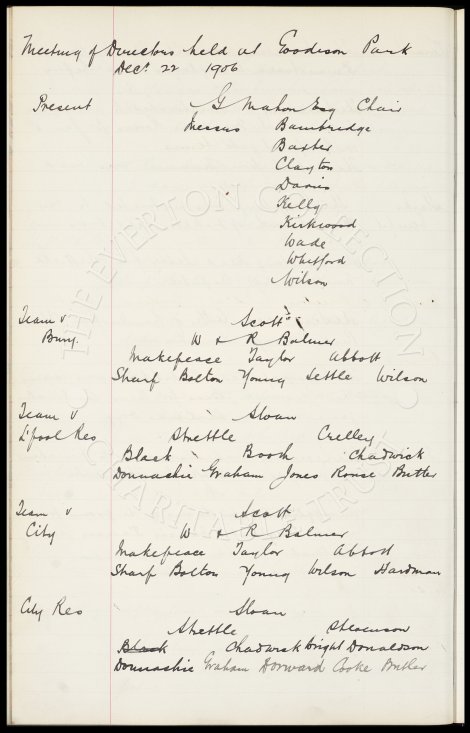 Meeting of Directors held at Goodison Park
Decr 22 1906
Present G Mahon Esq Chair
Messrs Bainbridge
Baxter
Clayton
Davies
Kelly
Kirkwood
Wade
Whitford
Wilson
Team v Scott
Bury. W & R Balmer
Makepeace Taylor Abbott
Sharp Bolton Young Settle Wilson
Team v Sloan
L'pool Res Strettle Crelley
Black Booth Chadwick
Donnachie Graham Jones Rouse Butler
Team v Scott
City W & R Balmer
Makepeace Taylor Abbott
Sharp Bolton Young Wilson Hardman
City Res Sloan
Strettle Stevenson
Black Chadwick Wright Donaldson
Donnachie Graham Dorward Cooke Butler
THE EVERTON COLLECTION
CHARITABLE TRUST